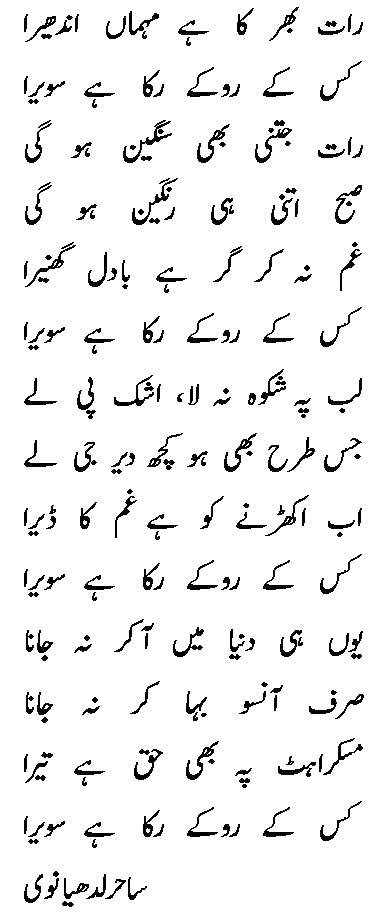 رات بھر کا ہے مہماں اندھیرا
کس کے روکے رکا ہے سویرا
رات جتنی بھی سنگین ہو گی
صبح اتنی ہی رنگین ہو گی
غم نہ کر گر ہے بادل گھنیرا
کس کے روکے رکا ہے سویرا
لب پہ شکوہ نہ لا، اشک پی لے
جس طرح بھی ہو کچھ دیر جی لے
اب اکھڑنے کو ہے غم کا ڈیرا
کس کے روکے رکا ہے سویرا
یوں ہی دنیا میں آ کر نہ جانا
صرف آنسو بہا کر نہ جانا
مسکراہٹ پہ بھی حق ہے تیرا
کس کے روکے رکا ہے سویرا
ساحر لدھیانوی